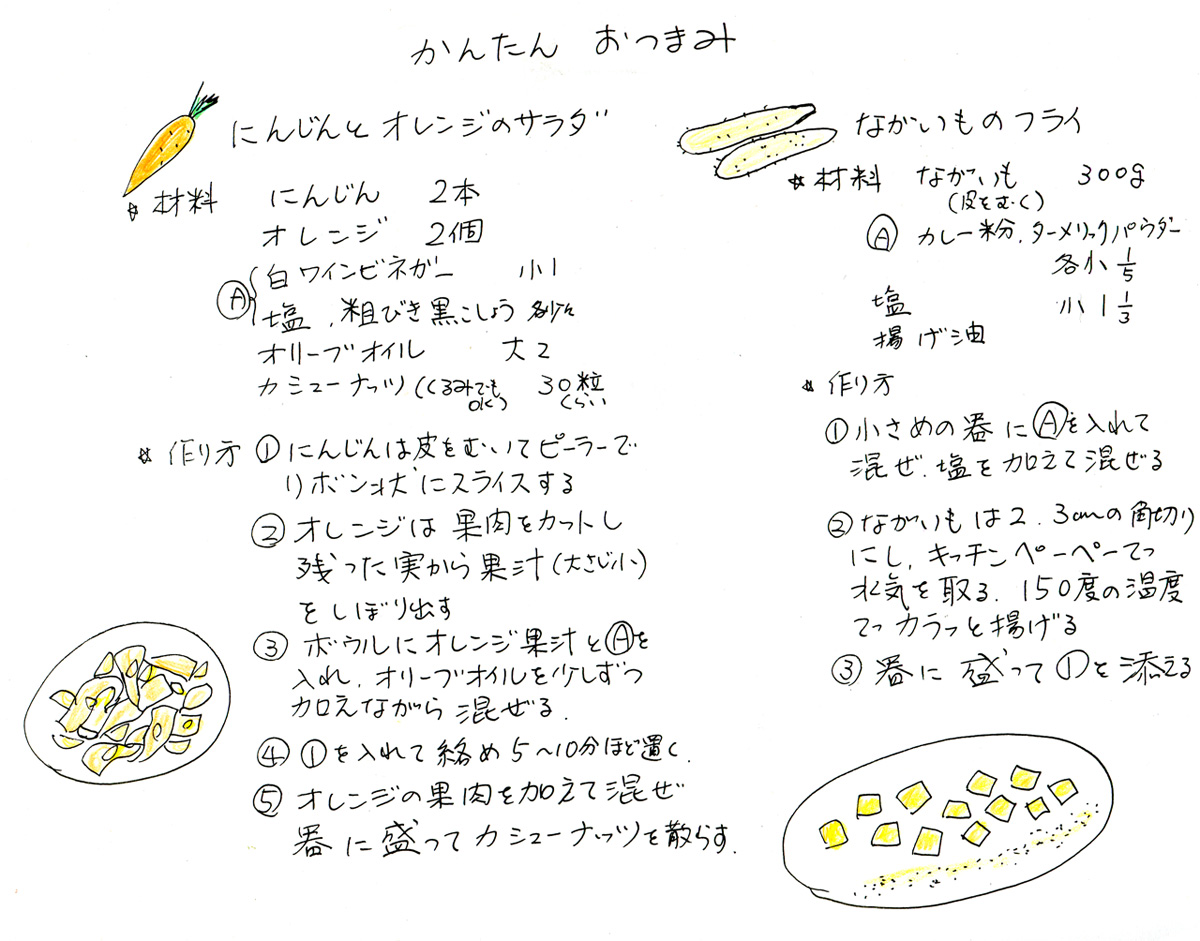 かんたん おつまみ
にんじんと オレンジのサラダ
☆ 材料 にんじん 2本
オレンジ 2個
Ⓐ 白ワインビネガー 小1
塩、粗びき黒こしょう 各少々
オリーブオイル 大2
カシューナッツ(くるみでも 30粒
OK) くらい
☆ 作り方 ①にんじんは皮をむいてピーラーで
リボン状にスライスする
② オレンジは果肉をカットし
残った実から果汁(大さじ小)
をしぼり出す
③ ボウルにオレンジ果汁とⒶを
入れ、オリーブオイルを少しずつ
加えながら混ぜる.
④ ①を入れて絡め5〜10分ほど置く.
⑤ オレンジの果肉を加えて混ぜ
器に盛ってカシューナッツを散らす.
なかいものフライ
☆ 材料 ながいも 300g
(皮をむく)
Ⓐ カレー粉、ターメリックパウダー
各小 1/5
塩 小 1 1/3
揚げ油
☆ 作り方
①小さめの器にⒶを入れて
混ぜ、塩を加えて混ぜる
②ながいもは2、3cmの角切り
にし、キッチンペーペーでっ
水気を取る、150度の温度
でっカラっと揚げる
③ 器に盛って①を添える